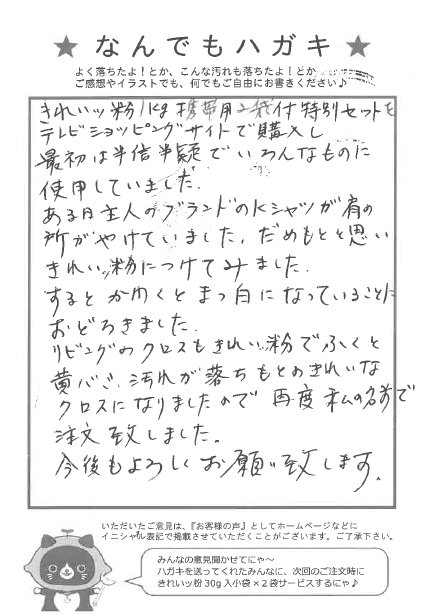 ★ なんでもハガキ ★
よく落ちたよ！とか、こんな汚れも落ちたよ！とか
ご感想やイラストでも、何でもご自由にお書きください♪
きれいッ粉1kg 携帯用2袋付特別セットを
テレビショッピングサイトで購入し
最初は半信半疑でいろんなものに
使用していました.
ある日主人のブランドのKシャツが肩の
所がやけていました. だめもとと思い
きれいッ粉につけてみました.
すると かわくと まっ白に なっていることに
おどろきました.
リビングのクロスもきれいッ粉でふくと
黄ばみ、汚れが落ちもとのきれいな
クロスになりましたので 再度 私の名前で
注文致しました。
今後もよろしくお願い致します.
いただいたご意見は、『お客様の声』としてホームページなどに
イニシャル表記で掲載させていただくことがございます。ご了承下さい。
みんなの意見聞かせてにゃ～
ハガキを送ってくれたみんなに、次回のご注文時に
きれいッ粉30g入小袋×2袋サービスするにゃ♪